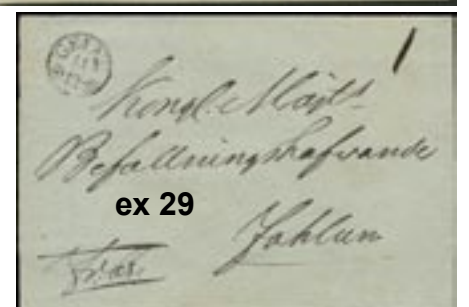 Kongl. Maj:ts
Befallningshafvande
ex 29
Fahlun